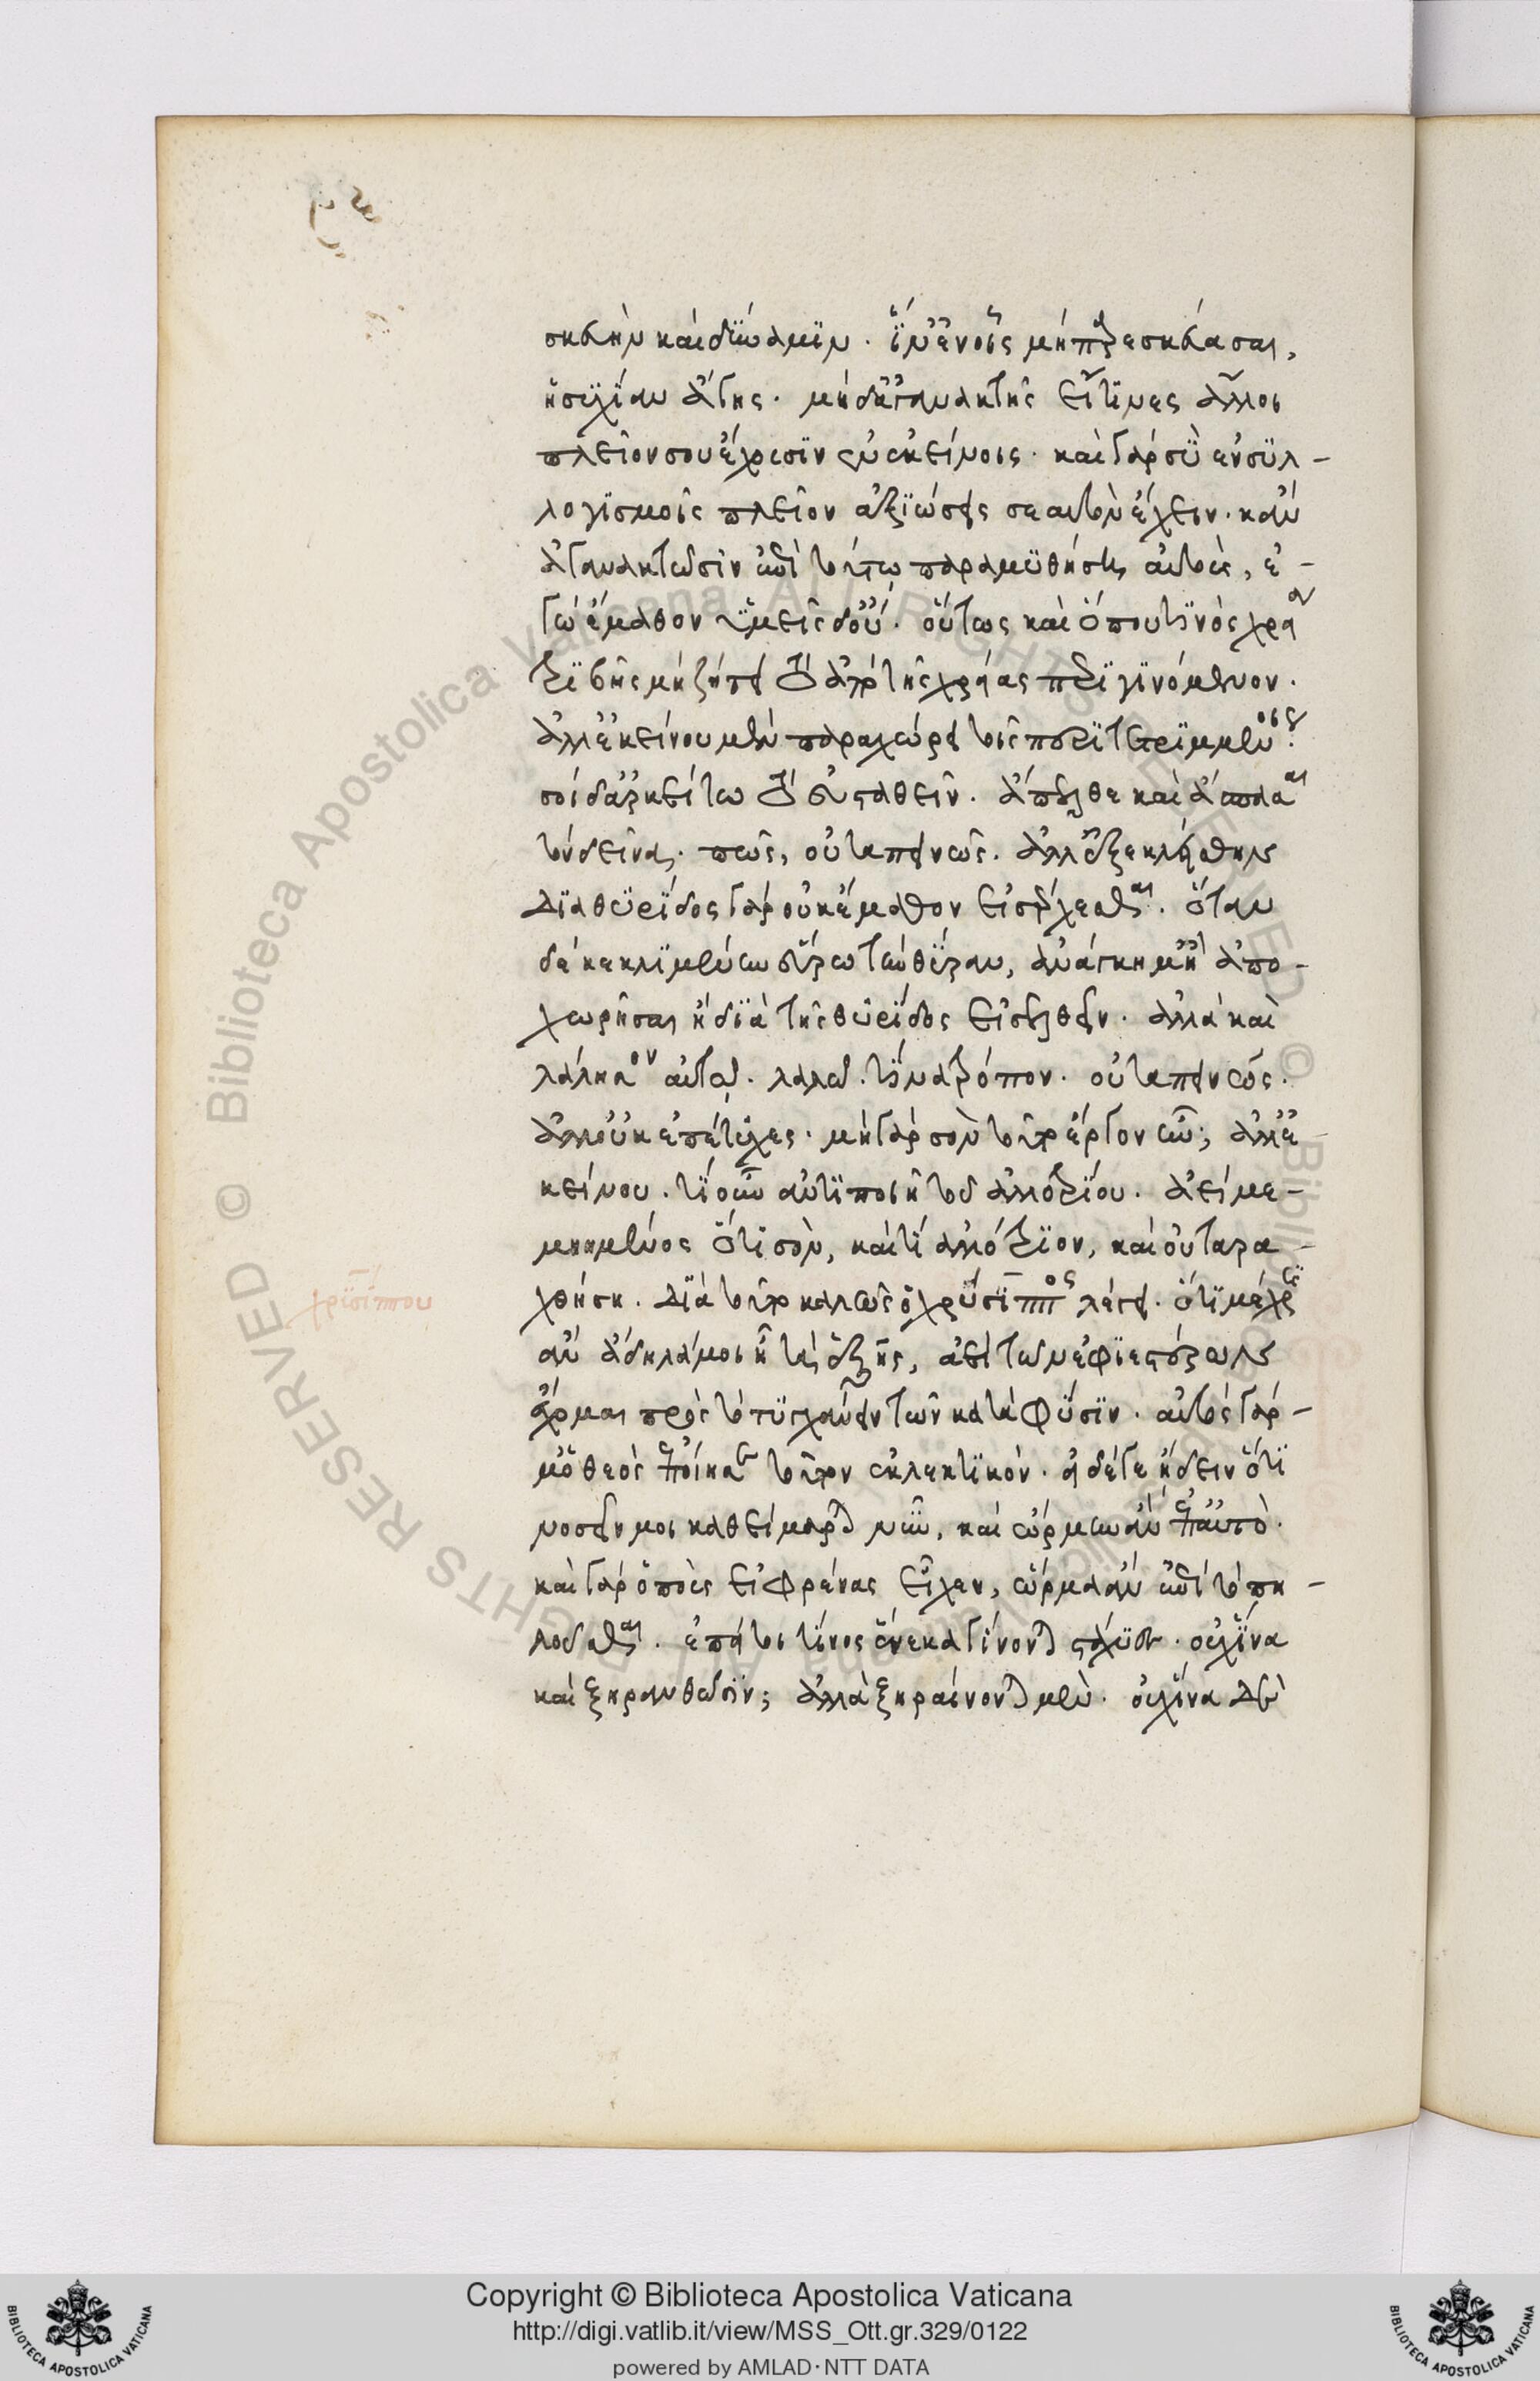 σκευὴν καὶ δύναμϊν. ἵν' ἐν οἷς μὴ παρεσκεύασαι,
ἡσυχίαν ἄγης. μὴ δ' ἀγανακτῆς εἴ τινες ἄλλοι
πλεῖον σου ἔχουσϊν ἐν ἐκείνοις. καὶ γὰρ σὺ ἐν σϋλ-
λογϊσμοῖς πλεῖον ἀξϊώσεις σεαυτὸν ἔχειν. κἂν
ἀγανακτῶσϊν ἐπὶ τούτω παραμϋθήση αὐτούς, ἐ-
γὼ ἔμαθον ὑμεῖς δ' οὔ. οὕτως καὶ ὅπου τϊνὸς χρεία
τρϊβῆς μὴ ζήτει τὸ ἀπ' αὐτῆς χρείας περϊγϊνόμενον.
ἀλλ' ἐκείνου μὲν παραχώρει τοῖς περϊτετρϊμμένοις.
σοὶ δ' ἀρκείτω τὸ εὐσταθεῖν. ἄπελθε καὶ ἄσπασαι
τὸν δεῖνα. πῶς, οὐ ταπεινῶς. ἀλλ' ἐξεκλείσθην
διὰ θϋρίδος γὰρ οὐκ ἔμαθον εἰσέρχεσθαι. ὅταν
δὲ κεκλϊμένην εὕρω τὴν θύραν, ἀνάγκη μ' ἢ ἀπο-
χωρῆσαι ἢ διὰ τῆς θϋρίδος εἰσελθεῖν. ἀλλὰ καὶ
λάλησον αὐτῶ. λαλῶ. τίνα τρόπον. οὐ ταπεινῶς.
ἀλλ' οὐκ ἐπέτυχες. μὴ γὰρ σὸν τοῦτο ἔργον ἦν; ἀλλ' ἐ-
κείνου. τί οὖν ἀντϊποιῆ τοῦ ἀλλοτρίου. ἀεὶ με-
μνημένος ὅτι σὸν, καὶ τί ἀλλότρϊον, καὶ οὐ ταρα-
χθήση. διὰ τοῦτο καλῶς ὁ χρύσϊππος λέγει. ὅτϊ μέχρϊς
ἂν ἄδηλά μοι ἦ τὰ ἑξῆς, ἀεὶ τῶν εὐφϊεστέρων
ἔχομαι πρὸς τὸ τϋγχάνειν τῶν κατὰ φύσϊν. αὐτὸς γάρ-
μ' ὁ θεὸς ἐποίησεν τούτων ἐκλεκτϊκόν. εἰ δέ γε ἤδειν ὅτϊ
νοσεῖν μοι καθείμαρται νῦν, καὶ ὥρμων ἂν ἐπ' αὐτό.
καὶ γὰρ ὁ ποὺς εἰ φρένας εἶχεν, ὥρμα ἂν ἐπὶ τὸ πη-
λοῦσθαι. ἐπεί τοι τίνος ἕνεκα γίνονται στάχϋες. οὐχ ἵνα
καὶ ξηρανθῶσϊν; ἀλλὰ ξηραίνονται μὲν. οὐχ ἵνα δὲ
χρϊσίππου
Copyright © Biblioteca Apostolica Vaticana
http://digi.vatlib.it/view/MSS_Ott.gr.329/0122
powered by AMLAD·NTT DATA